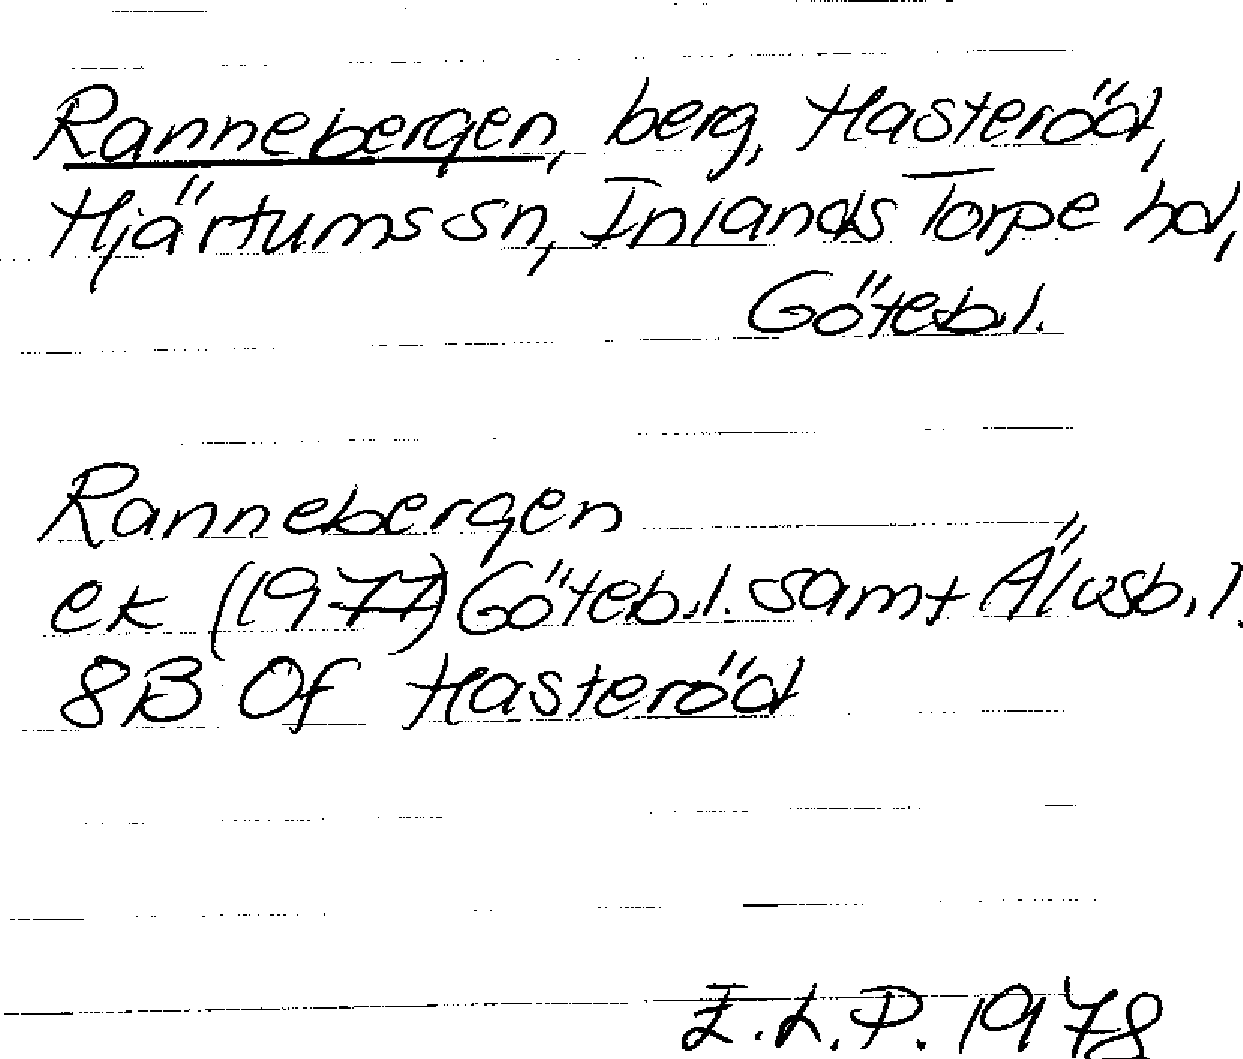 Rannebergen, berg, Hasteröd,
Hjärtums sn, Inlands Torpe hd,
Göteb.l.
Rannebergen
ek (1977) Göteb.l. samt Älvsb.l.
8B 0f Hasteröd
E.L.P. 1978